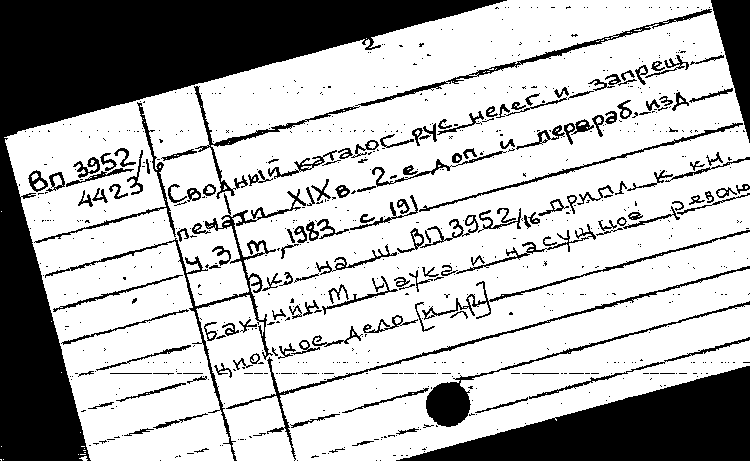 2
Вп 3952/16
4423
Сводный каталог рус. нелег. и запрещ.
печати XIX в. 2-е доп. и перераб. изд.
Ч. 3 М., 1983 с. 191.
Экз. на ш. ВП 3952/16 припл. к кн.
Бакунин, М. Наука и насущное револю
ционное дело [и др]